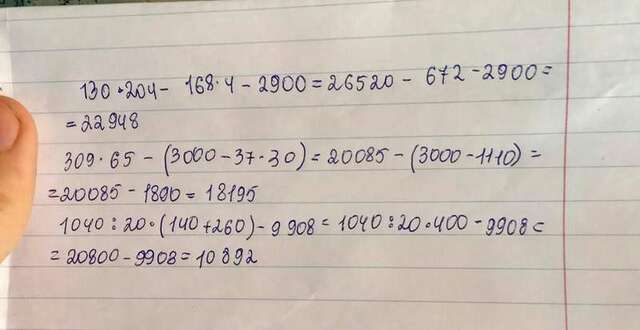 130·204 - 168·4 - 2900 = 26520 - 672 - 2900 =
= 22948
309·65 - (3000 - 37·30) = 20085 - (3000 - 1110) =
= 20085 - 1890 = 18195
1040 : 20·(140 + 260) - 9 908 = 1040 : 20·400 - 9908 =
= 20800 - 9908 = 10892